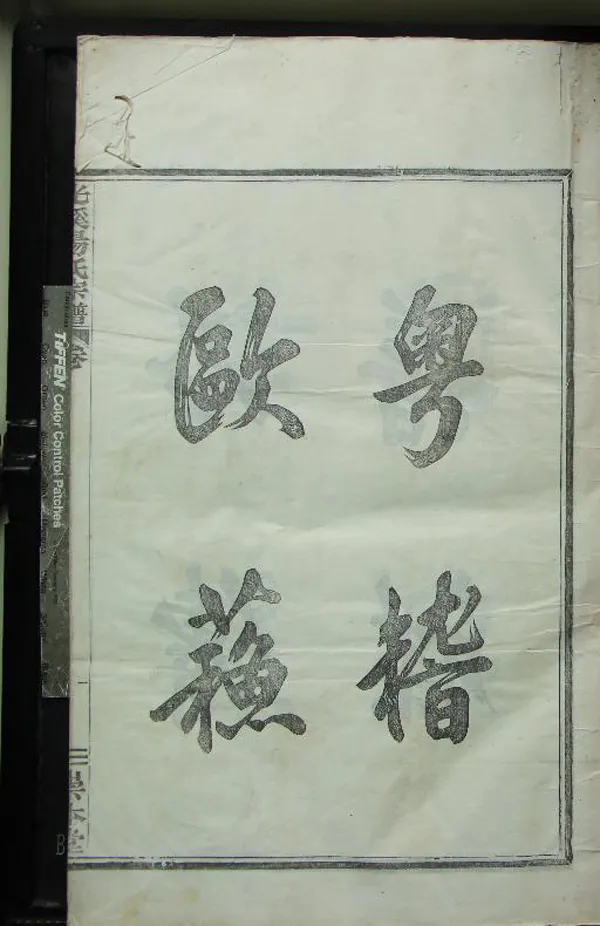 粤稽
歐蘇
TIFFEN Color Control Patches
楊氏宗譜
一
B